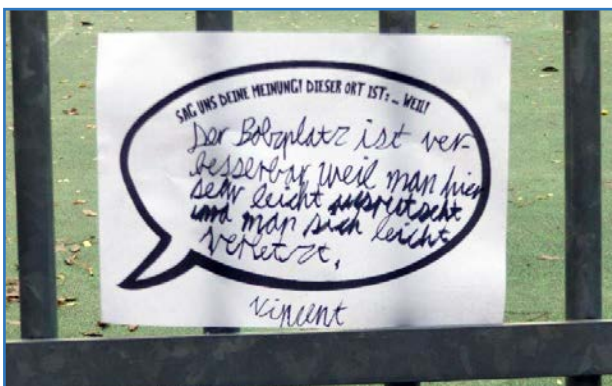 SAG UNS DEINE MEINUNG! DIESER ORT IST: ... WEIL!
Der Bolzplatz ist ver-
besserbar weil man hier
sehr leicht ausrutscht
und man sich leicht
verletzt.
Vincent